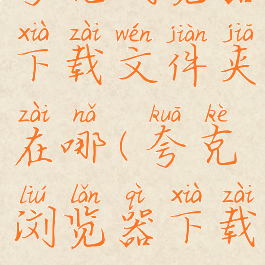 xià zài wén jiàn jiā
下载文件夹
zài nǎ kuā kè
在哪(夸克
liú lǎn qì xià zài
浏览器下载